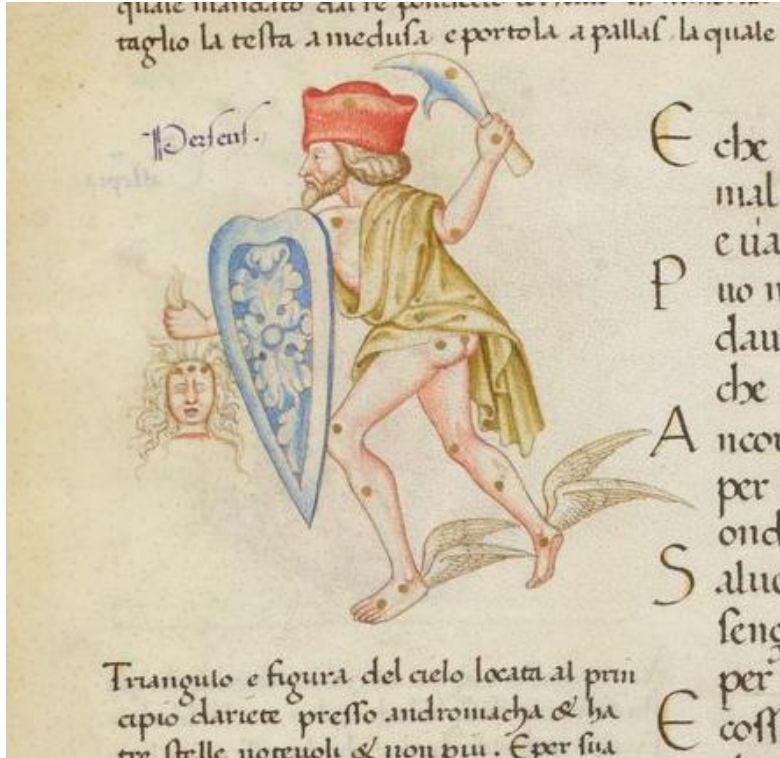 taglio la testa a medusa e portola a pallas la quale
Perseus.
E che
mal
e ua
P uo
dau
che
A ncor
per
ond
S aluo
seng
per
E coss
Triangulo e figura del cielo locata al prin
cipio dariete presso andromacha & ha
tre stelle noteuoli & non piu. E per sua